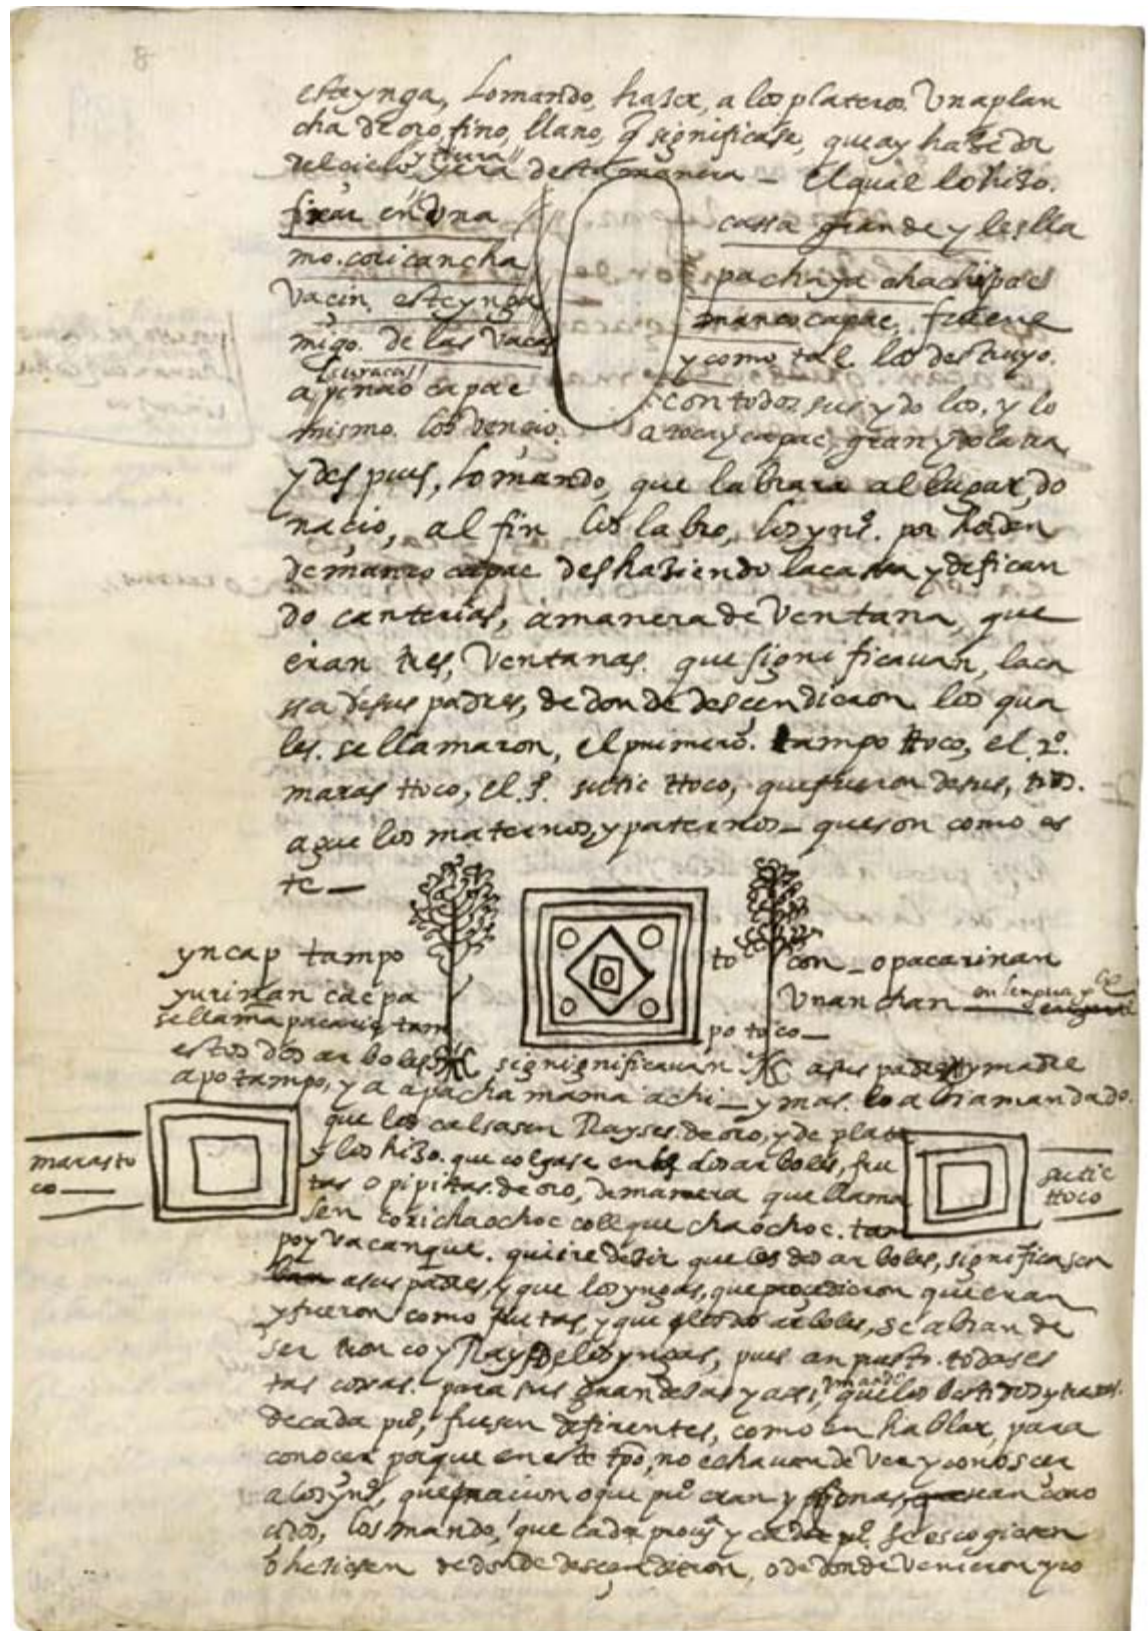 8
este ynga, lo mando, haser, a los plateros. Una plan
cha de oro fino, llano, q̃ significase, que ay hasedor
del cielo y tierra y era desta manera _ El qual lo hizo.
fixar en una casa grande y les lla
mo. coricancha pachayachachipac
uacin, este ynga manco capac, fue ene
migo. de las uacas y como tal. los destruyo.
curacas
a pinao capac con todos sus ydolos, y lo
mismo. los vencio. a tocay capac, gran ydolatra
y despues, lo mando, que labrara al lugar, do
naçio, al fin los labro, los ynº. por horden
de manco capac deshaziendo la casa y defican
do canterias, a manera de ventana, que
eran tres, ventanas. que significauan, la ca
ssa de sus padres, de donde desçendieron los qua
les. se llamaron, el primero. tampo ttoco, el 2º.
maras ttoco, el 3º. sutic ttoco, que fueron de sus, tios.
aguelos maternos, y paternos _ que son como es
te _
yncap tampo to con _ o pacarinan
yurinan cacpa unanchan en lengua
se llama pacarina tam po toco _
estos dos arboles signignificauan a sus padre y madre
apo tampo, y a apachamama achi _ y mas. lo abia mandado.
que los calsasen rayses. de oro, y de plata
y los hizo. que colgase en los dos arboles, fru
tas o pipitas. de oro, de manera que llama
sen corichaochoc collquechaochoc. tam
poy uacanque. quiere desir que los dos arboles, significasen
a sus padres, y que los yngas, que proçedieron que eran
y fueron como frutas, y que los dos arboles, se abian de
ser tronco y rays de los yngas, pues an puesto. todas es
tas cosas. para sus grandesas y assi, mando que los bestidos y trajes.
maras to
co _
sutic
ttoco
de cada puº, fuesen defirentes, como en hablar, para
conocer porque en este tpo, no echauan de ver y conosçer
a los ynº, que naçion o que puº eran y eran cono
cidos, los mando, que cada prouª y cada puº. se escogiesen
o hesiesen de donde desçendieron, o de donde venieron y co